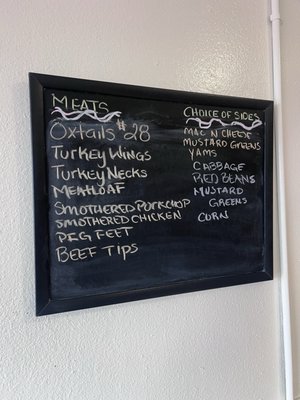 MEATS
OXTAILS $28
TURKEY WINGS
TURKEY NECKS
MEATLOAF
SMOTHERED PORKCHOP
SMOTHERED CHICKEN
PIG FEET
BEEF TIPS
CHOICE OF SIDES
MAC N CHEESE
MUSTARD GREENS
YAMS
CABBAGE
RED BEANS
MUSTARD
GREENS
CORN